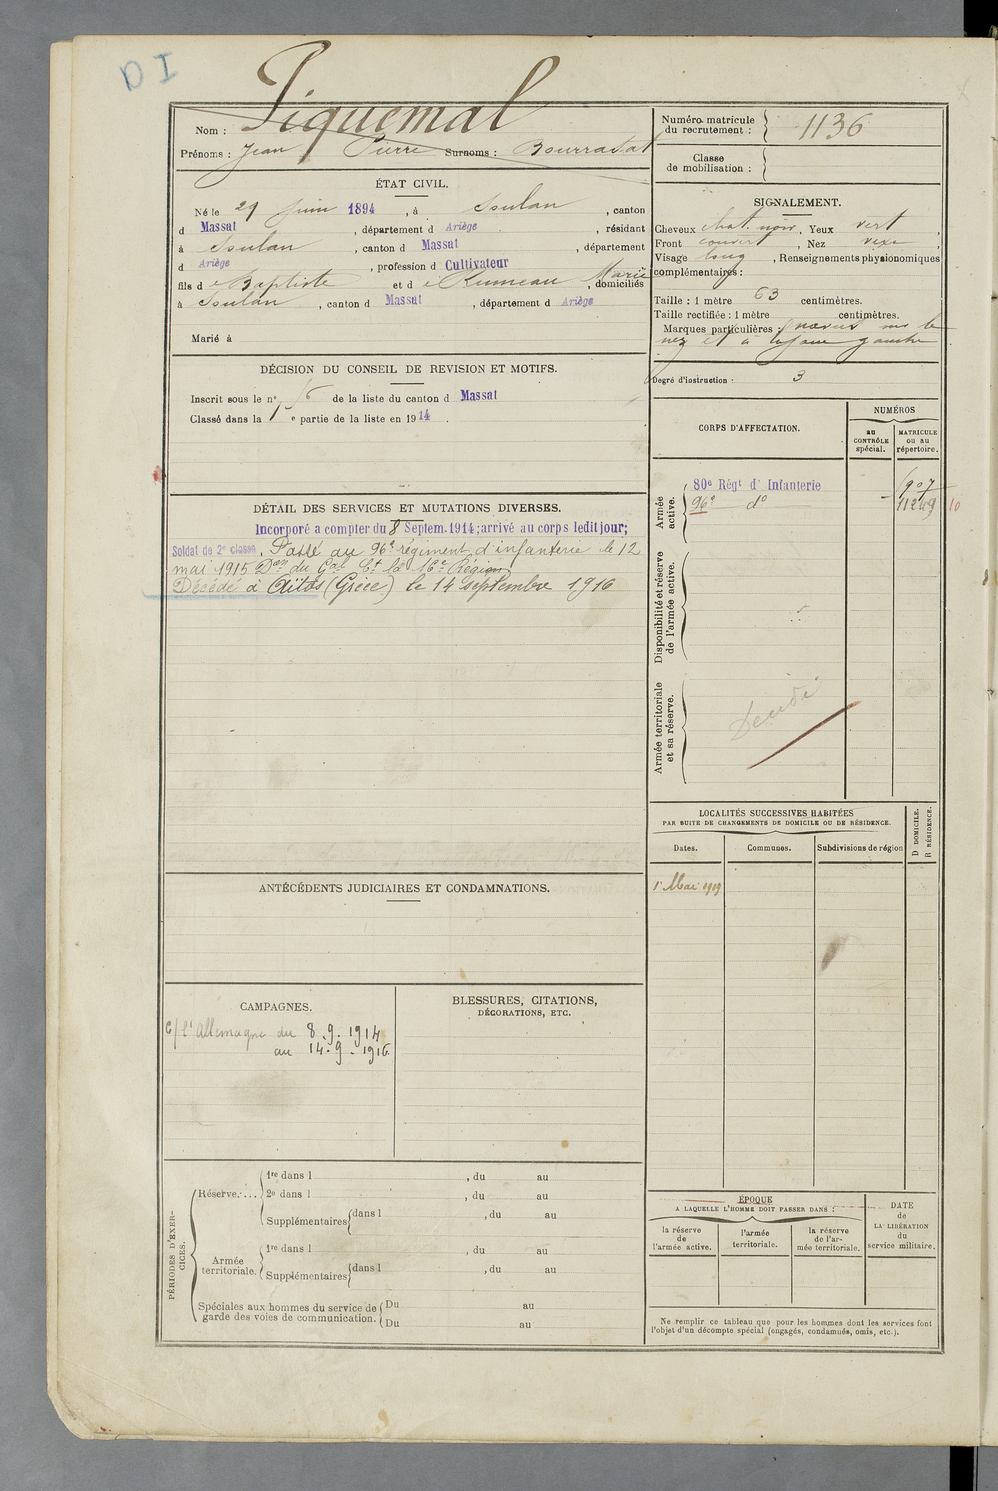 D I
Nom : Piquemal
Prénoms : Jean Pierre Surnoms : Bourradat
Numéro matricule du recrutement : 1136
Classe de mobilisation :
ÉTAT CIVIL.
Né le 29 juin 1894, à Soulan, canton
d Massat, département d Ariège, résidant
à Soulan, canton d Massat, département
d Ariège, profession d Cultivateur
fils d e Baptiste et d e Rumeau Marie, domiciliés
à Soulan, canton d Massat, département d Ariège
Marié à
SIGNALEMENT.
Cheveux chat. noir, Yeux vert,
Front couvert, Nez vexe,
Visage long, Renseignements physionomiques
complémentaires :
Taille : 1 mètre 63 centimètres.
Taille rectifiée : 1 mètre centimètres.
Marques particulières : naevus sur le
nez et à la joue gauche
Degré d'instruction : 3
DÉCISION DU CONSEIL DE REVISION ET MOTIFS.
Inscrit sous le n° de la liste du canton d Massat
Classé dans la 1 e partie de la liste en 1914.
CORPS D'AFFECTATION.
NUMÉROS
au CONTRÔLE spécial.
MATRICULE ou au répertoire.
Armée active.
80e Régt d' Infanterie 907
96e do 11249 10
Disponibilité et réserve de l'armée active.
Armée territoriale et sa réserve.
Décédé
DÉTAIL DES SERVICES ET MUTATIONS DIVERSES.
Incorporé a compter du 8 Septem. 1914; arrivé au corps ledit jour;
Soldat de 2e classe. Passé au 96e régiment d'infanterie le 12
mai 1915 Don du Gal Ct la 16e Région
Décédé à Aïtos (Grèce) le 14 septembre 1916
LOCALITÉS SUCCESSIVES HABITÉES
PAR SUITE DE CHANGEMENTS DE DOMICILE OU DE RÉSIDENCE.
D DOMICILE.
R RÉSIDENCE.
Dates. Communes. Subdivisions de région
1er Mai 1919
ANTÉCÉDENTS JUDICIAIRES ET CONDAMNATIONS.
CAMPAGNES.
c/ l'Allemagne du 8.9.1914
au 14.9.1916
BLESSURES, CITATIONS,
DÉCORATIONS, ETC.
PÉRIODES D'EXERCICES.
Réserve....
1re dans l , du au
2e dans l , du au
Supplémentaires dans l , du au
Armée territoriale.
1re dans l , du au
Supplémentaires dans l , du au
Spéciales aux hommes du service de garde des voies de communication.
Du au
Du au
ÉPOQUE
A LAQUELLE L'HOMME DOIT PASSER DANS :
la réserve de l'armée active.
l'armée territoriale.
la réserve de l'armée territoriale.
DATE de LA LIBÉRATION du service militaire.
Ne remplir ce tableau que pour les hommes dont les services font
l'objet d'un décompte spécial (engagés, condamnés, omis, etc.).